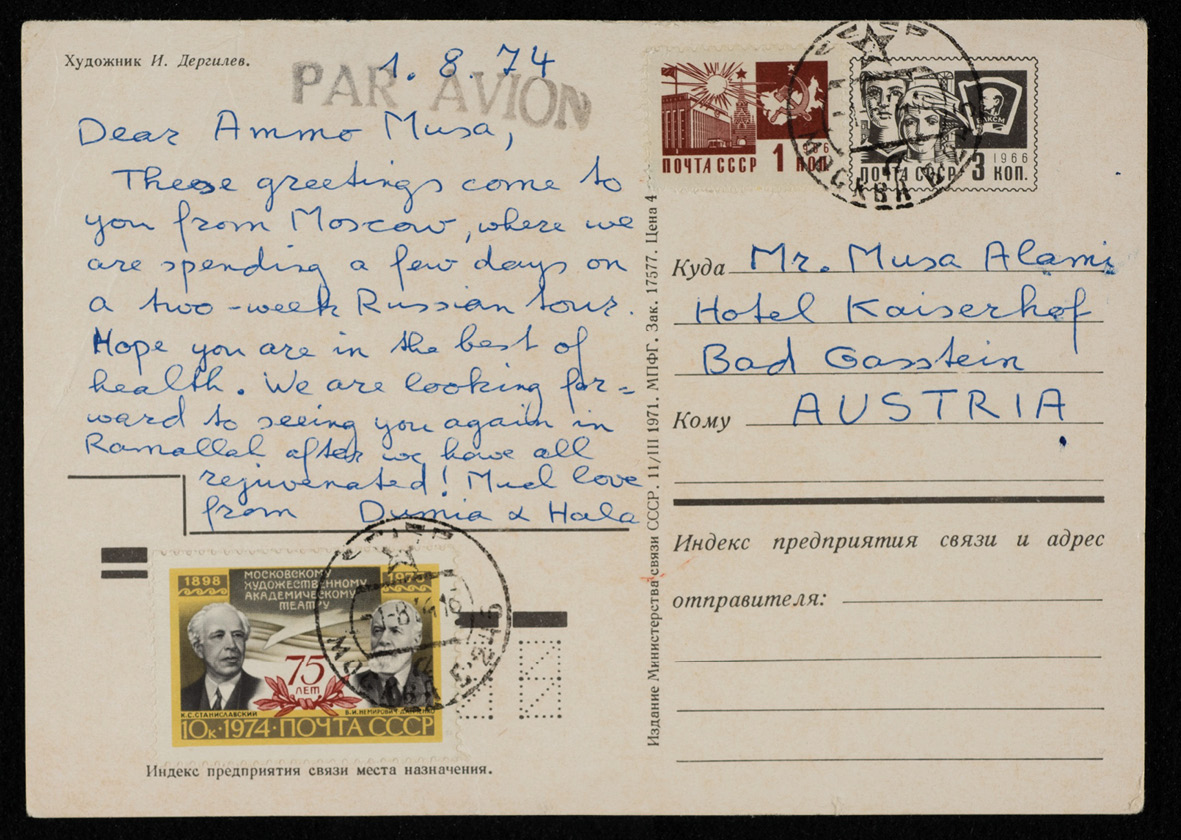 Художник И. Дергилев.
PAR AVION
1. 8. 74
Dear Ammo Musa,
These greetings come to
you from Moscow, where we
are spending a few days on
a two-week Russian tour.
Hope you are in the best of
health. We are looking for=
ward to seeing you again in
Ramallah after we have all
rejuvenated! Much love
from Dumia & Hala
1898 1973
МОСКОВСКОМУ
ХУДОЖЕСТВЕННОМУ
АКАДЕМИЧЕСКОМУ
ТЕАТРУ
75
ЛЕТ
К.С. СТАНИСЛАВСКИЙ В.И. НЕМИРОВИЧ-ДАНЧЕНКО
10к·1974·ПОЧТА СССР
МОСКВА
Индекс предприятия связи места назначения.
Издание Министерства связи СССР. 11/III 1971. МПФГ. Зак. 17577. Цена 4
ПОЧТА СССР 1 КОП
ВЛКСМ
1966
ПОЧТА СССР 3 КОП.
МОСКВА
Куда Mr. Musa Alami
Hotel Kaiserhof
Bad Gasstein
Кому AUSTRIA
Индекс предприятия связи и адрес
отправителя: